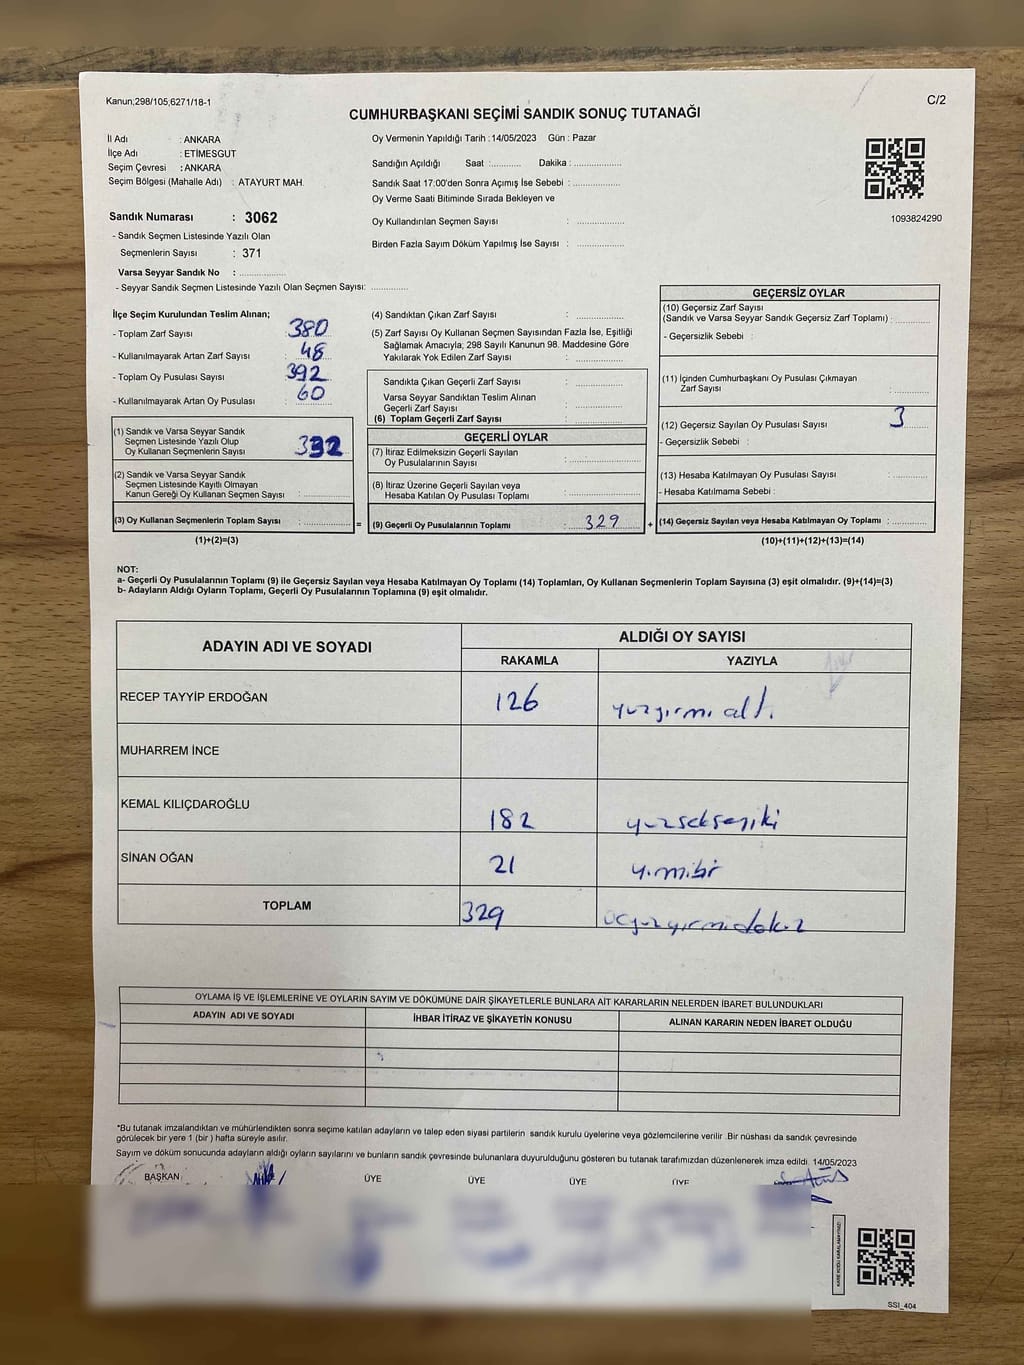 Kanun;298/105;6271/18-1
C/2
CUMHURBAŞKANI SEÇİMİ SANDIK SONUÇ TUTANAĞI
İl Adı : ANKARA
İlçe Adı : ETİMESGUT
Seçim Çevresi : ANKARA
Seçim Bölgesi (Mahalle Adı) : ATAYURT MAH.
Sandık Numarası : 3062
- Sandık Seçmen Listesinde Yazılı Olan
Seçmenlerin Sayısı : 371
Varsa Seyyar Sandık No : ..............
- Seyyar Sandık Seçmen Listesinde Yazılı Olan Seçmen Sayısı: ............
Oy Vermenin Yapıldığı Tarih : 14/05/2023 Gün : Pazar
Sandığın Açıldığı Saat :.......... Dakika : ................
Sandık Saat 17:00'den Sonra Açımış İse Sebebi : ................
Oy Verme Saati Bitiminde Sırada Bekleyen ve
Oy Kullandırılan Seçmen Sayısı : ................
Birden Fazla Sayım Döküm Yapılmış İse Sayısı : ................
1093824290
İlçe Seçim Kurulundan Teslim Alınan;
- Toplam Zarf Sayısı : 380
- Kullanılmayarak Artan Zarf Sayısı : 48
- Toplam Oy Pusulası Sayısı : 392
- Kullanılmayarak Artan Oy Pusulası : 60
(1) Sandık ve Varsa Seyyar Sandık
Seçmen Listesinde Yazılı Olup
Oy Kullanan Seçmenlerin Sayısı : 332
(2) Sandık ve Varsa Seyyar Sandık
Seçmen Listesinde Kayıtlı Olmayan
Kanun Gereği Oy Kullanan Seçmen Sayısı : ................
(3) Oy Kullanan Seçmenlerin Toplam Sayısı : ................ =
(1)+(2)=(3)
(4) Sandıktan Çıkan Zarf Sayısı : ................
(5) Zarf Sayısı Oy Kullanan Seçmen Sayısından Fazla İse, Eşitliği
Sağlamak Amacıyla; 298 Sayılı Kanunun 98. Maddesine Göre
Yakılarak Yok Edilen Zarf Sayısı : ................
Sandıkta Çıkan Geçerli Zarf Sayısı : ................
Varsa Seyyar Sandıktan Teslim Alınan
Geçerli Zarf Sayısı : ................
(6) Toplam Geçerli Zarf Sayısı : ................
GEÇERLİ OYLAR
(7) İtiraz Edilmeksizin Geçerli Sayılan
Oy Pusulalarının Sayısı : ................
(8) İtiraz Üzerine Geçerli Sayılan veya
Hesaba Katılan Oy Pusulası Toplamı : ................
(9) Geçerli Oy Pusulalarının Toplamı : 329 +
GEÇERSİZ OYLAR
(10) Geçersiz Zarf Sayısı
(Sandık ve Varsa Seyyar Sandık Geçersiz Zarf Toplamı) : ............
- Geçersizlik Sebebi :
(11) İçinden Cumhurbaşkanı Oy Pusulası Çıkmayan
Zarf Sayısı : ............
(12) Geçersiz Sayılan Oy Pusulası Sayısı : 3
- Geçersizlik Sebebi :
(13) Hesaba Katılmayan Oy Pusulası Sayısı : ............
- Hesaba Katılmama Sebebi :
(14) Geçersiz Sayılan veya Hesaba Katılmayan Oy Toplamı : ............
(10)+(11)+(12)+(13)=(14)
NOT:
a- Geçerli Oy Pusulalarının Toplamı (9) ile Geçersiz Sayılan veya Hesaba Katılmayan Oy Toplamı (14) Toplamları, Oy Kullanan Seçmenlerin Toplam Sayısına (3) eşit olmalıdır. (9)+(14)=(3)
b- Adayların Aldığı Oyların Toplamı, Geçerli Oy Pusulalarının Toplamına (9) eşit olmalıdır.
ADAYIN ADI VE SOYADI ALDIĞI OY SAYISI
RAKAMLA YAZIYLA
RECEP TAYYİP ERDOĞAN 126 yüzyirmi altı
MUHARREM İNCE
KEMAL KILIÇDAROĞLU 182 yüzsekseniki
SİNAN OĞAN 21 yirmibir
TOPLAM 329 üçyüzyirmidokuz
OYLAMA İŞ VE İŞLEMLERİNE VE OYLARIN SAYIM VE DÖKÜMÜNE DAİR ŞİKAYETLERLE BUNLARA AİT KARARLARIN NELERDEN İBARET BULUNDUKLARI
ADAYIN ADI VE SOYADI İHBAR İTİRAZ VE ŞİKAYETİN KONUSU ALINAN KARARIN NEDEN İBARET OLDUĞU
*Bu tutanak imzalandıktan ve mühürlendikten sonra seçime katılan adayların ve talep eden siyasi partilerin sandık kurulu üyelerine veya gözlemcilerine verilir .Bir nüshası da sandık çevresinde
görülecek bir yere 1 (bir ) hafta süreyle asılır.
Sayım ve döküm sonucunda adayların aldığı oyların sayılarını ve bunların sandık çevresinde bulunanlara duyurulduğunu gösteren bu tutanak tarafımızdan düzenlenerek imza edildi. 14/05/2023
BAŞKAN ÜYE ÜYE ÜYE ÜYE
KARE KODU KARALAMAYINIZ!
SSI_404